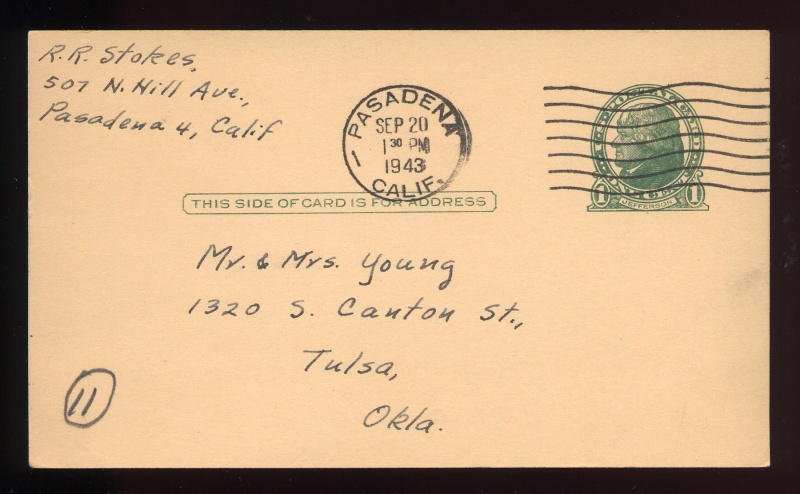 R.R. Stokes,
507 N. Hill Ave.,
Pasadena 4, Calif
PASADENA
SEP 20
1 30 PM
1943
CALIF.
1 JEFFERSON 1
THIS SIDE OF CARD IS FOR ADDRESS
Mr. & Mrs. Young
1320 S. Canton St.,
Tulsa,
Okla.
11